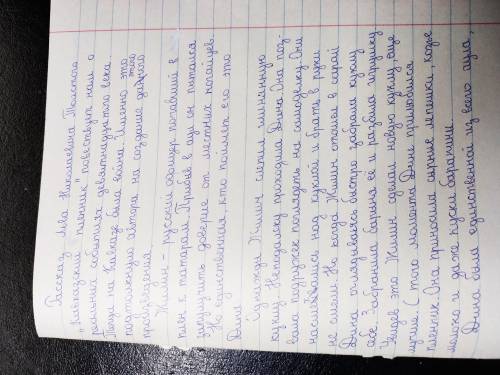 Рассказ Льва Николаевича Толстого
"Кавказский пленник" повествует нам о
реальных событиях девятнадцатого века.
Тогда на Кавказе была война. Именно это
подтолкнуло автора на создание данного
произведения.
Жилин - русский офицер, попавший в
плен к татарам. Прибыв в аул он пытался
заслужить доверие от местных ногайцев.
Но единственная, кто поймет его это
Дина.
Однажды Жилин слепил глиняную
куклу. Неподалеку проходила Дина. Она поз-
вала подружек поглядеть на самоделку. Они
насмехались над куклой и брать в руки
не смели. Но когда Жилин отошел в сарай
Дина оглядываясь быстро забрала куклу
себе. Забранила барыня её и разбила игрушку.
Увидев это Жилин сделал новую куклу, еще
лучше. С того момента Дине приглюбился
пленник. Она приносила сырные лепешки, козье
молоко и даже куски баранины.
Дина была единственной из всего аула,